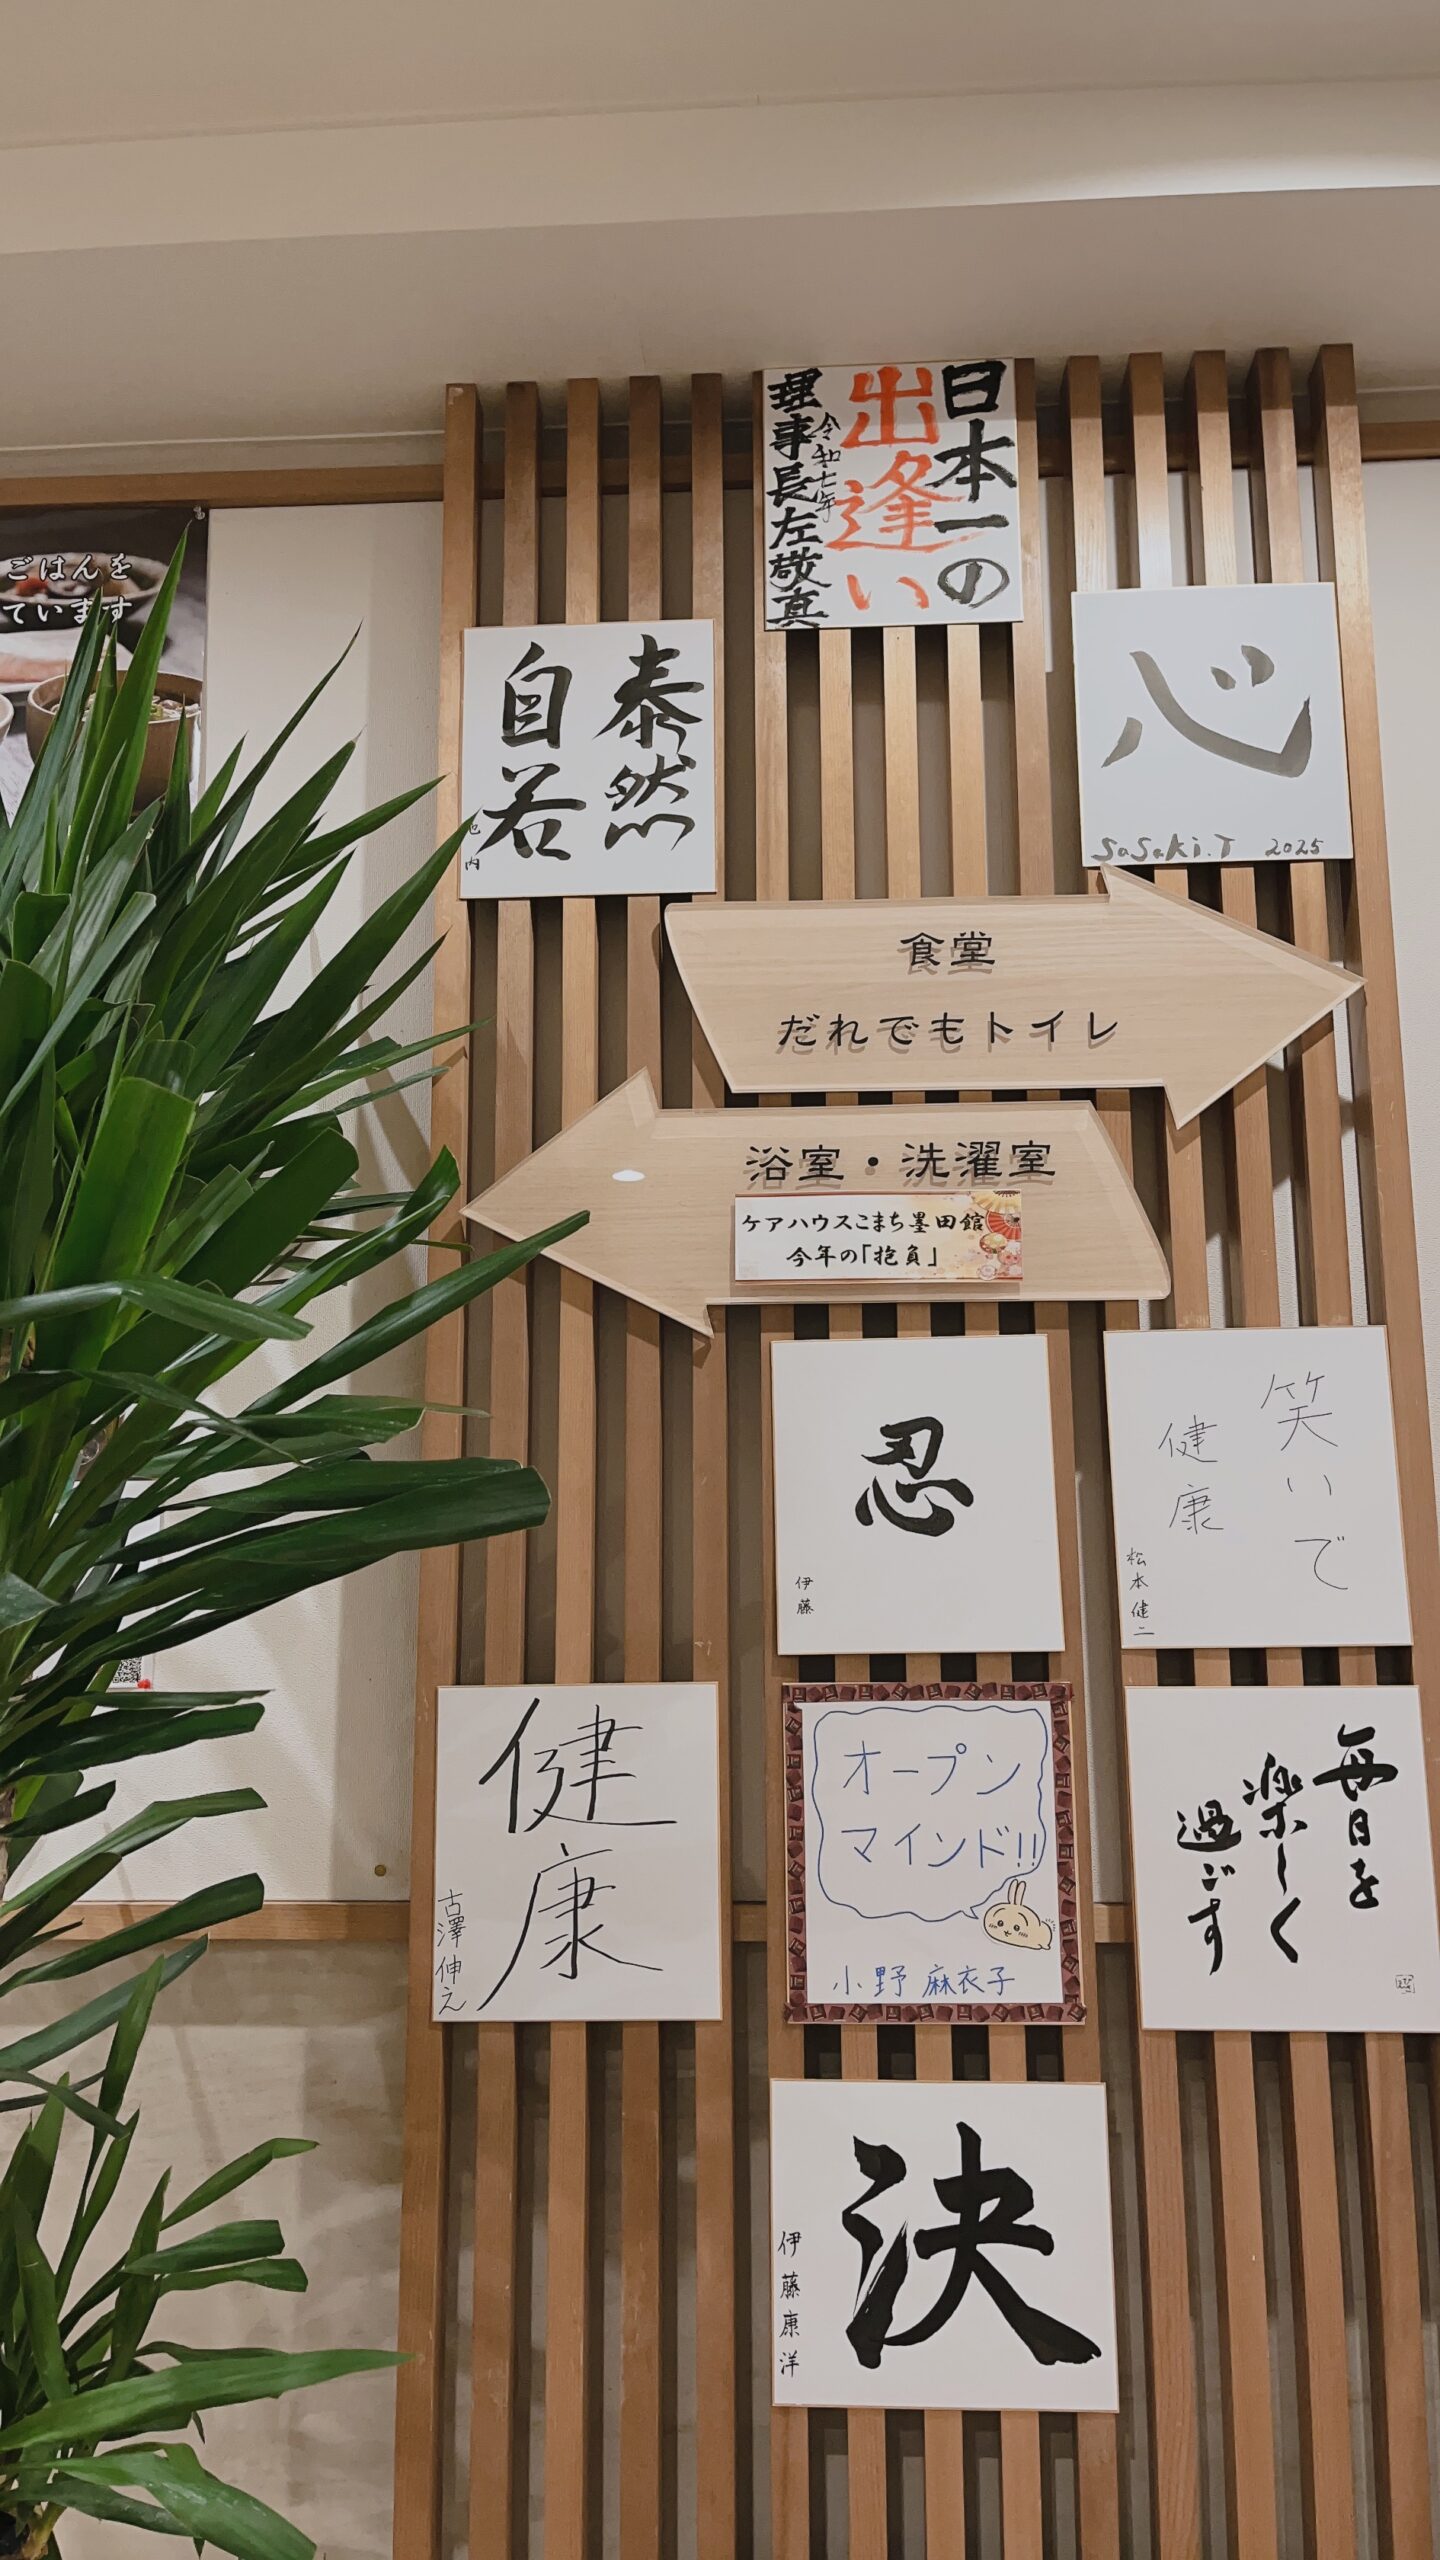 ごはんを
ています
日本一の
出逢い
令和七年
理事長左敬真
泰然
自若
心
SaSaKi.T 2025
食堂
だれでもトイレ
浴室・洗濯室
ケアハウスこまち墨田館
今年の「抱負」
忍
伊藤
笑いで
健康
松本健二
健康
古澤伸え
オープン
マインド!!
小野麻衣子
毎日を
楽しく
過ごす
決
伊藤康洋